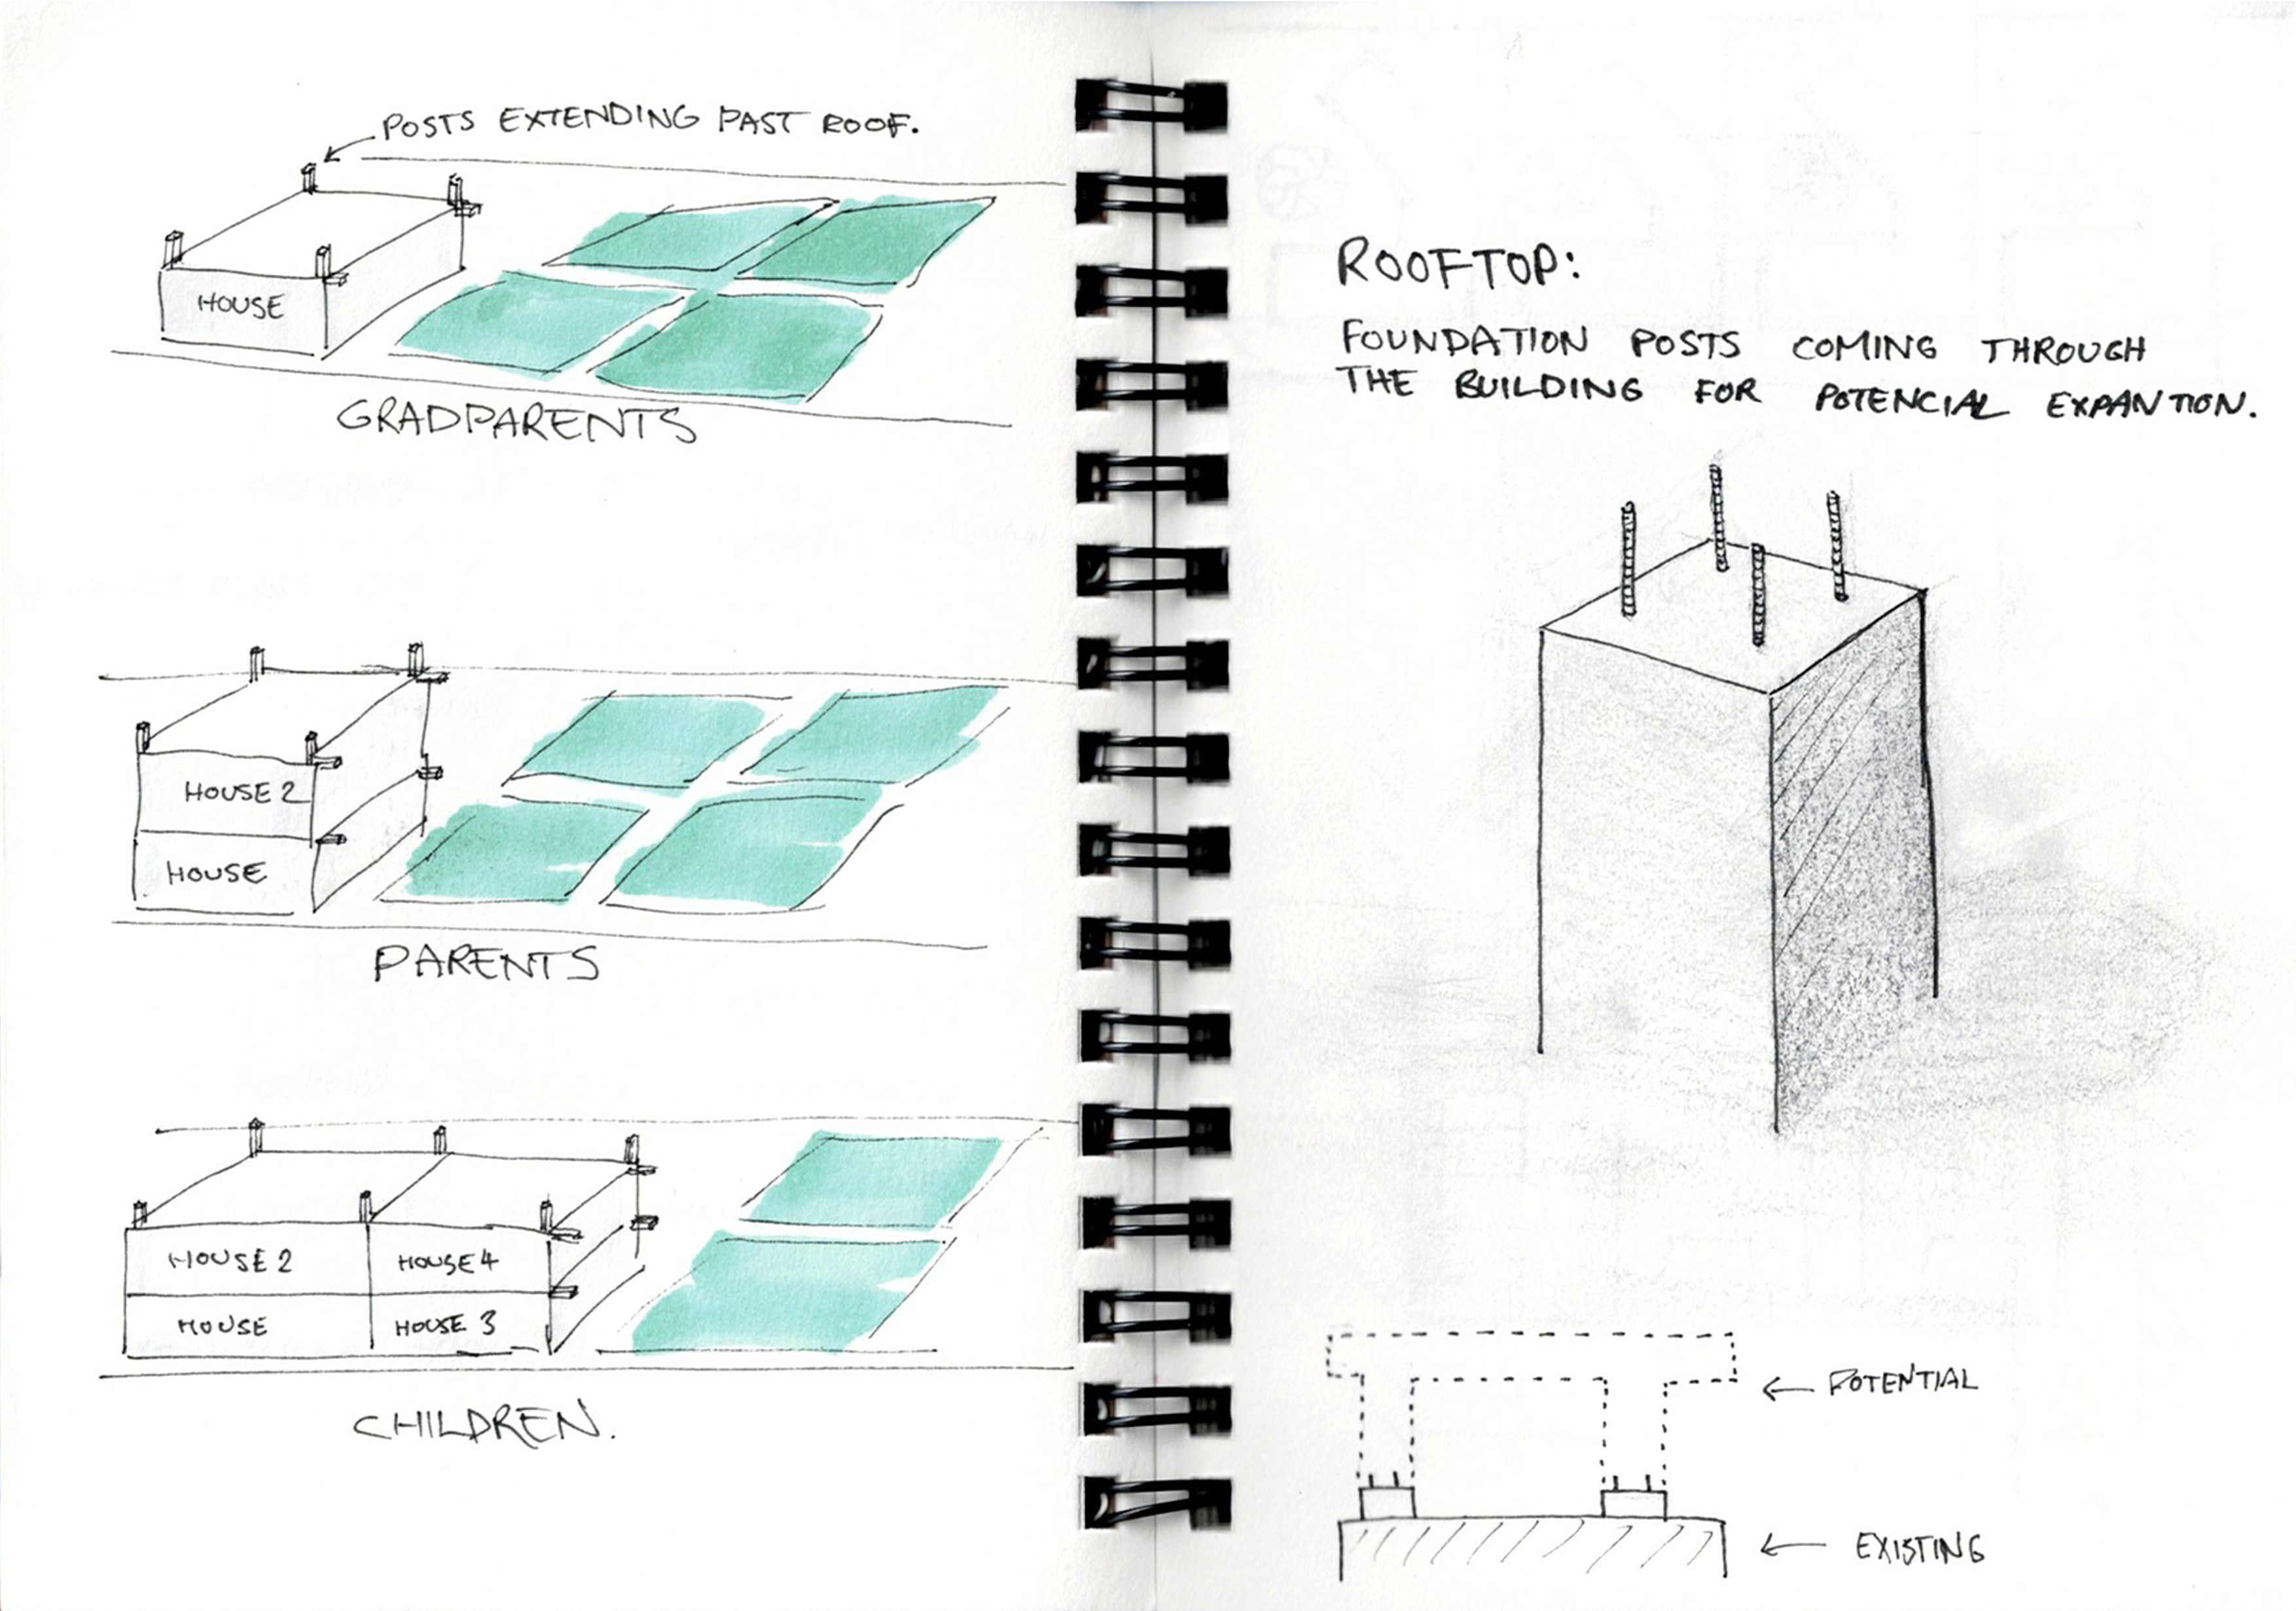 POSTS EXTENDING PAST ROOF.
HOUSE
GRADPARENTS
HOUSE 2
HOUSE
PARENTS
HOUSE 2
HOUSE 4
HOUSE
HOUSE 3
CHILDREN.
ROOFTOP:
FOUNDATION POSTS COMING THROUGH
THE BUILDING FOR POTENCIAL EXPANTION.
POTENTIAL
EXISTING